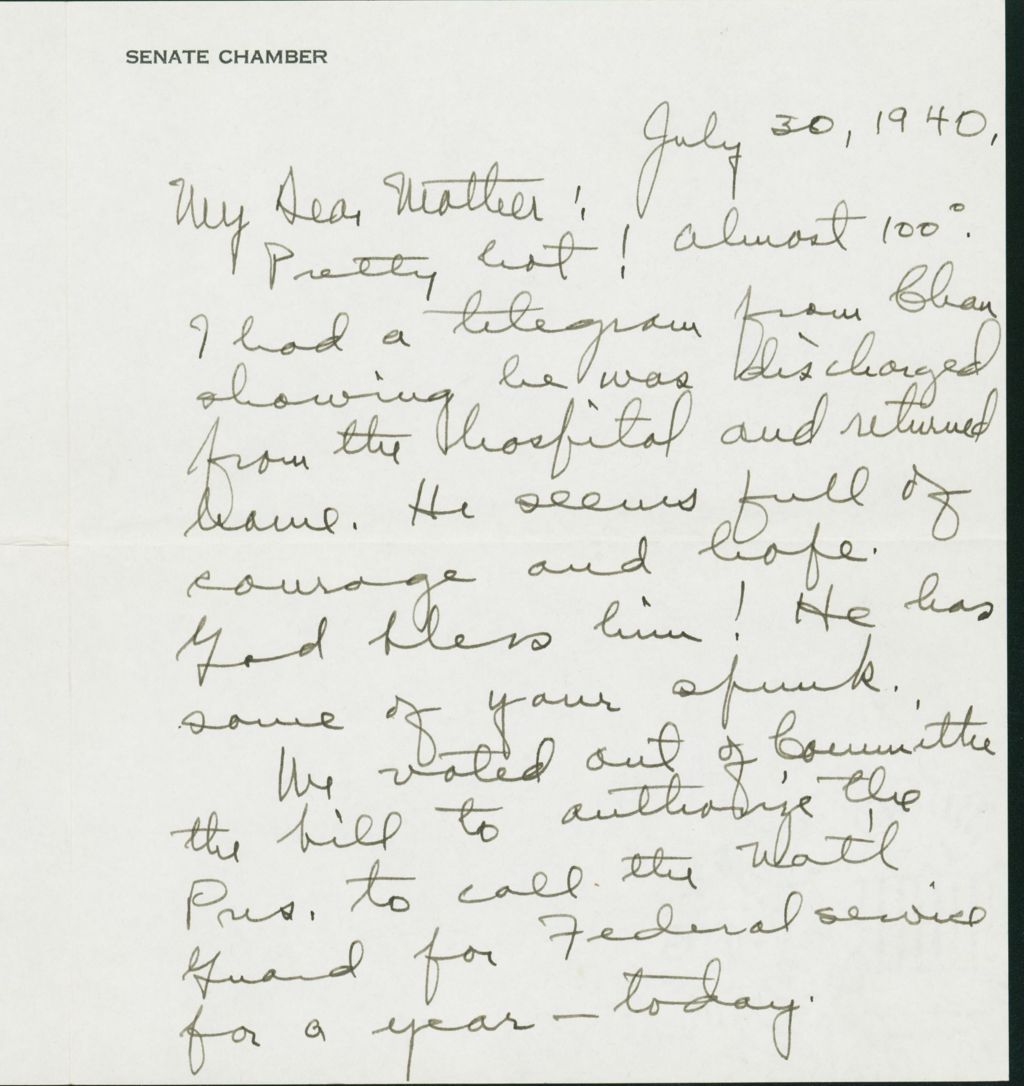 SENATE CHAMBER
July 30, 1940,
My Dear Mother!
Pretty hot! almost 100°.
I had a telegram from Chan
showing he was discharged
from the hospital and returned
home. He seems full of
courage and hope.
God bless him! He has
some of your spunk.
We voted out of Committee
the bill to authorize the
Pres. to call the Nat'l
Guard for Federal service
for a year – today.